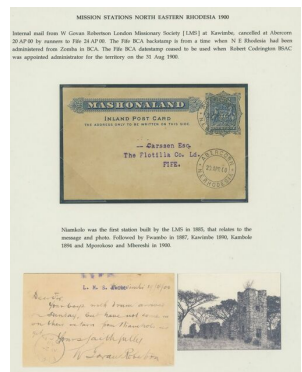 MISSION STATIONS NORTH EASTERN RHODESIA 1900
Internal mail from W Govan Robertson London Missionary Society [LMS] at Kawimbe, cancelled at Abercorn
20 AP 00 by runners to Fife 24 AP 00. The Fife BCA backstamp is from a time when N E Rhodesia had been
administered from Zomba in BCA. The Fife BCA datestamp ceased to be used when Robert Codrington BSAC
was appointed administrator for the territory on the 31 Aug 1900.
MASHONALAND
INLAND POST CARD
THE ADDRESS ONLY TO BE WRITTEN ON THIS SIDE
-- Carasen Esq,
The Flotilla Co. Ld.
FIFE.
ABERCORN
Niamkolo was the first station built by the LMS in 1885, that relates to the
message and photo. Followed by Fwambo in 1887, Kawimbe 1890, Kambole
1894 and Mporokoso and Mbereshi in 1900.
L. M. S.
Dear Sir
Yours faithfully
W Govan Robertson